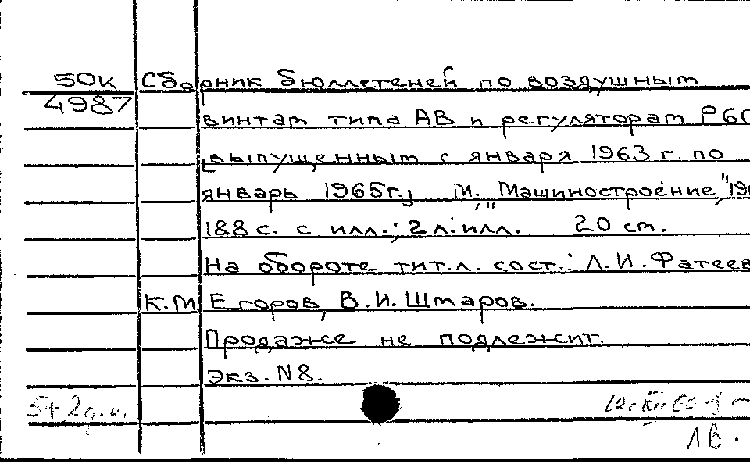 50К Сборник бюллетеней по воздушным
4987 винтам типа АВ и регуляторам Р60
выпущенным с января 1963 г. по
январь 1965г., М. "Машиностроение", 19
188 с. с илл.; 2 л. илл. 20 см.
На обороте тит.л. сост.: Л.И.Фатеев
К.М Егоров, В.И.Штаров.
Продаже не подлежит.
Экз. N8.
ЛВ.